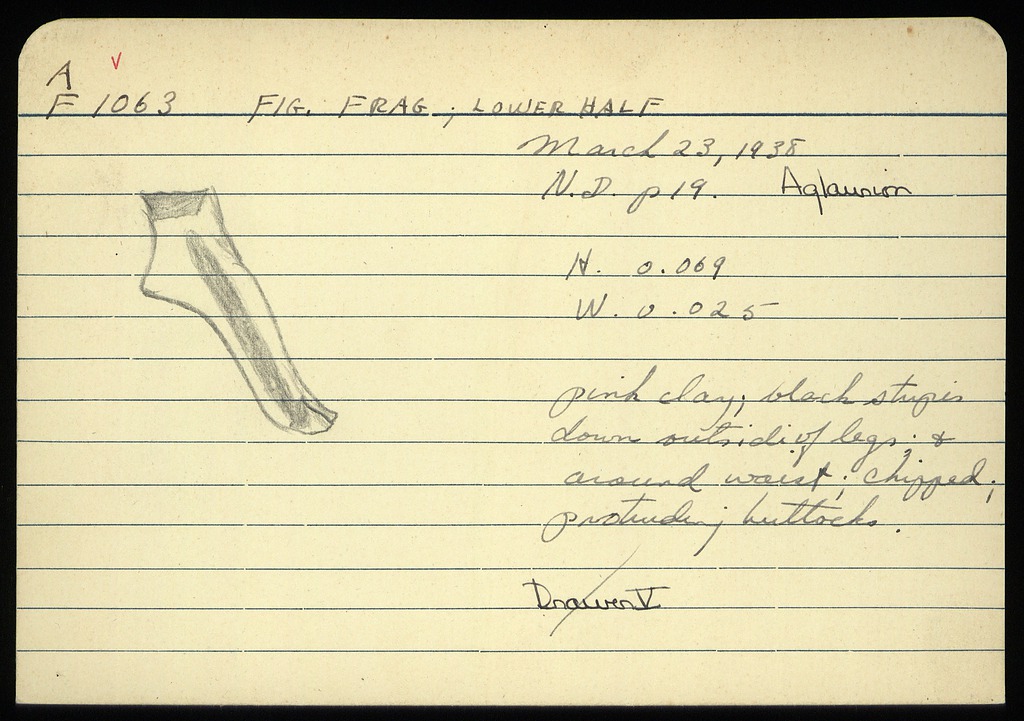 A v
F 1063 FIG. FRAG.; LOWER HALF
March 23, 1938
N.D. p 19. Aglaurion
H. 0.069
W. 0.025
pink clay; black stripes
down outside of legs; &
around waist; chipped;
protruding buttocks.
Drawer V